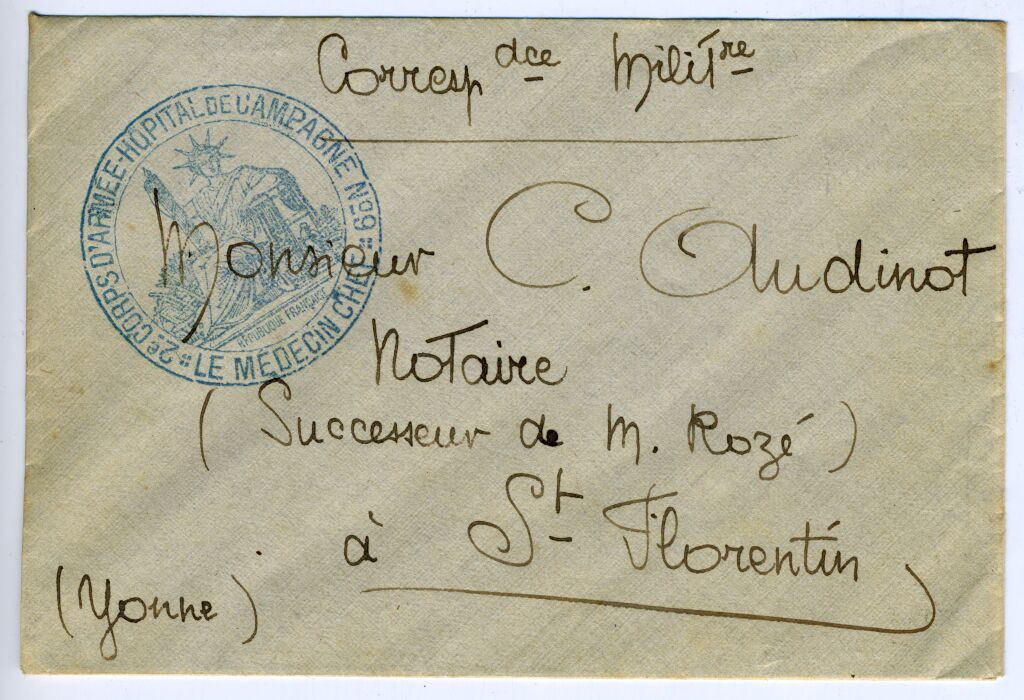 Corresp dce Militre
2e CORPS D'ARMÉE-HÔPITAL DE CAMPAGNE No 9
LE MÉDECIN CHEF
RÉPUBLIQUE FRANÇAISE
Monsieur C. Audinot
Notaire
( Successeur de M. Rozé )
à St Florentin
(Yonne)